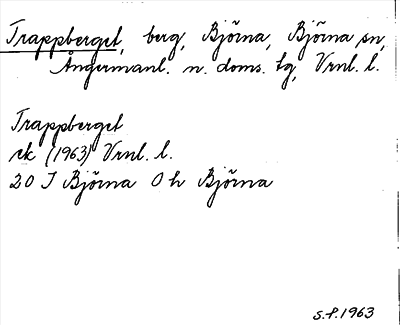 Trappberget, berg, Björna, Björna sn,
Ångermanl. n. doms. tg, Vrnl. l.
Trappberget
rk (1963) Vrnl. l.
20 J Björna 0 h Björna
S.P. 1963